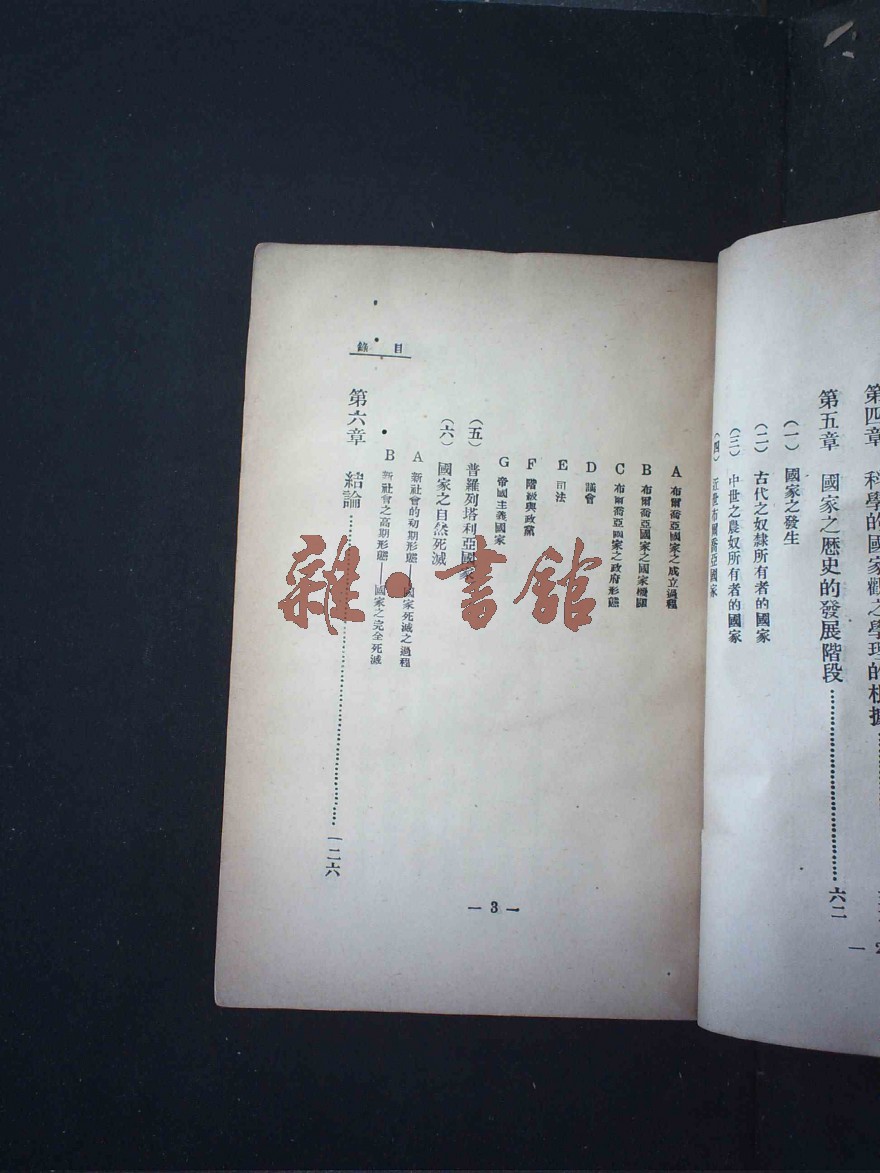 科學的國家觀之學理的根據
第五章 國家之歷史的發展階段……六二
(一) 國家之發生
(二) 古代之奴隸所有者的國家
(三) 中世之農奴所有者的國家
(四) 近世布爾喬亞國家
目錄
A 布爾喬亞國家之成立過程
B 布爾喬亞國家之國家機關
C 布爾喬亞國家之政府形態
D 議會
E 司法
F 階級與政黨
G 帝國主義國家
(五) 普羅列塔利亞國家
(六) 國家之自然死滅
A 新社會的初期形態——國家死滅之過程
B 新社會之高期形態——國家之完全死滅
第六章 結論……一二六
— 3 —
雜·書館